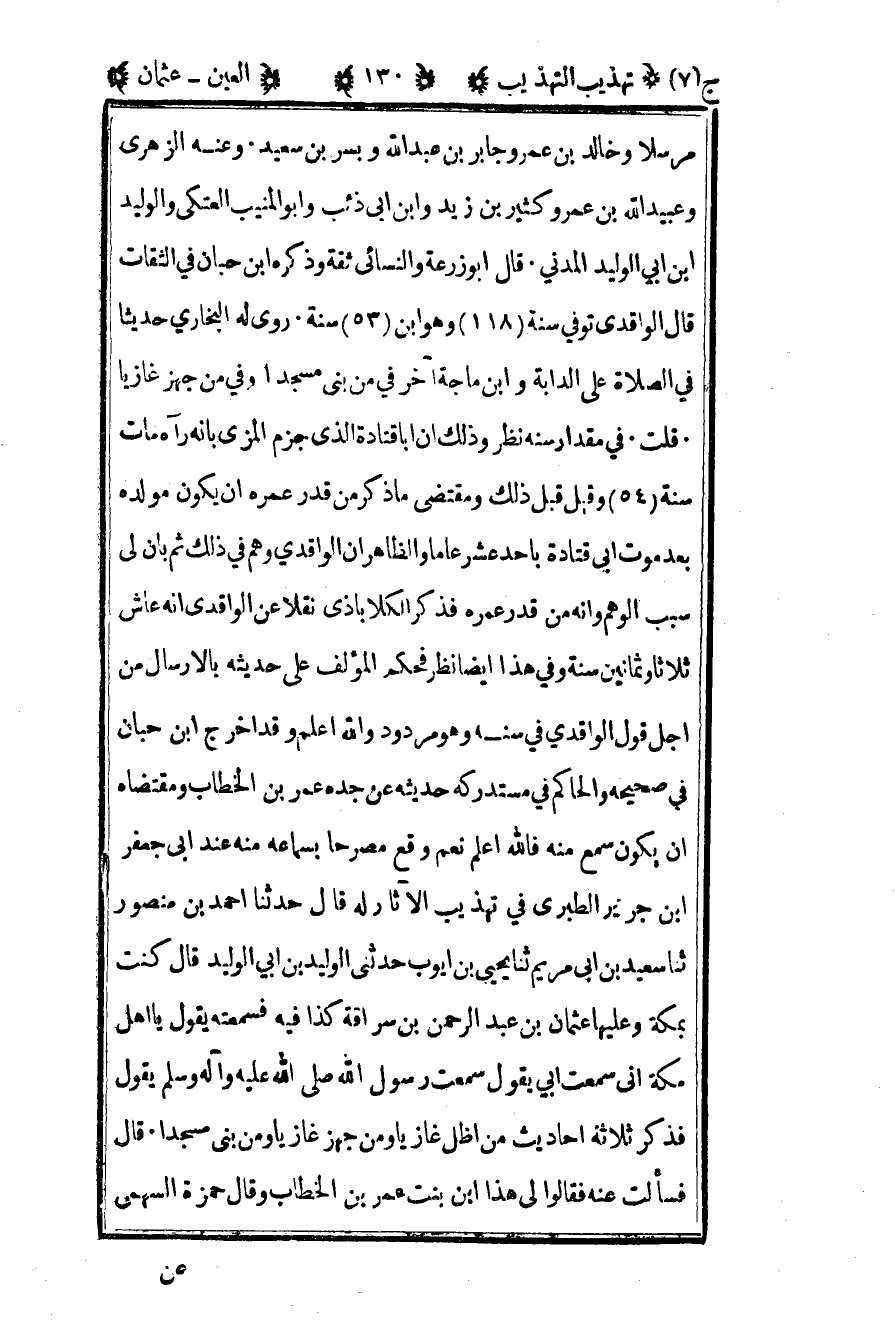 ج (٧) تهذيب التهذيب ١٣٠ العين - عثمان
مرسلا وخالد بن عمرو جابر بن عبدالله و بسر بن سعيد · وعنه الزهرى
وعبيدالله بن عمرو كثير بن زيد وابن ابى ذئب وابوالمنيب العتكى والوليد
ابن ابي الوليد المدني · قال ابوزرعة والنسائى ثقة وذكره ابن حبان في الثقات
قال الواقدى توفي سنة (١١٨) وهو ابن (٥٣) سنة · روى له البخاري حديثا
في الصلاة على الدابة و ابن ماجة آخر في من بنى مسجدا وفي من جهز غازيا
· قلت · في مقدار سنه نظر وذلك ان اباقتادة الذى جزم المزى بانه رآه مات
سنة (٥٤) وقيل قبل ذلك ومقتضى ماذكر من قدر عمره ان يكون مولده
بعد موت ابى قتادة باحد عشر عاما والظاهر ان الواقدي وهم في ذلك ثم بان لى
سبب الوهم وانه من قدر عمره فذكر الكلاباذى نقلا عن الواقدى انه عاش
ثلاثا وثمانين سنة وفي هذا ايضا نظر فحكم المؤلف على حديثه بالارسال من
اجل قول الواقدي في سنه وهو مردود والله اعلم وقد اخرج ابن حبان
في صحيحه والحاكم في مستدركه حديثه عن جده عمر بن الخطاب ومقتضاه
ان يكون سمع منه فالله اعلم نعم وقع مصرحا بسماعه منه عند ابى جعفر
ابن جرير الطبرى في تهذيب الآثار له قال حدثنا احمد بن منصور
ثنا سعيد بن ابى مريم ثنا يحيى بن ايوب حدثنى الوليد بن ابي الوليد قال كنت
بمكة وعليها عثمان بن عبد الرحمن بن سراقة كذا فيه فسمعته يقول يا اهل
مكة انى سمعت ابي يقول سمعت رسول الله صلى الله عليه وآله وسلم يقول
فذكر ثلاثة احاديث من اظل غازيا ومن جهز غازيا ومن بنى مسجدا · قال
فسألت عنه فقالوا لى هذا ابن بنت عمر بن الخطاب وقال حمزة السهمى
عن